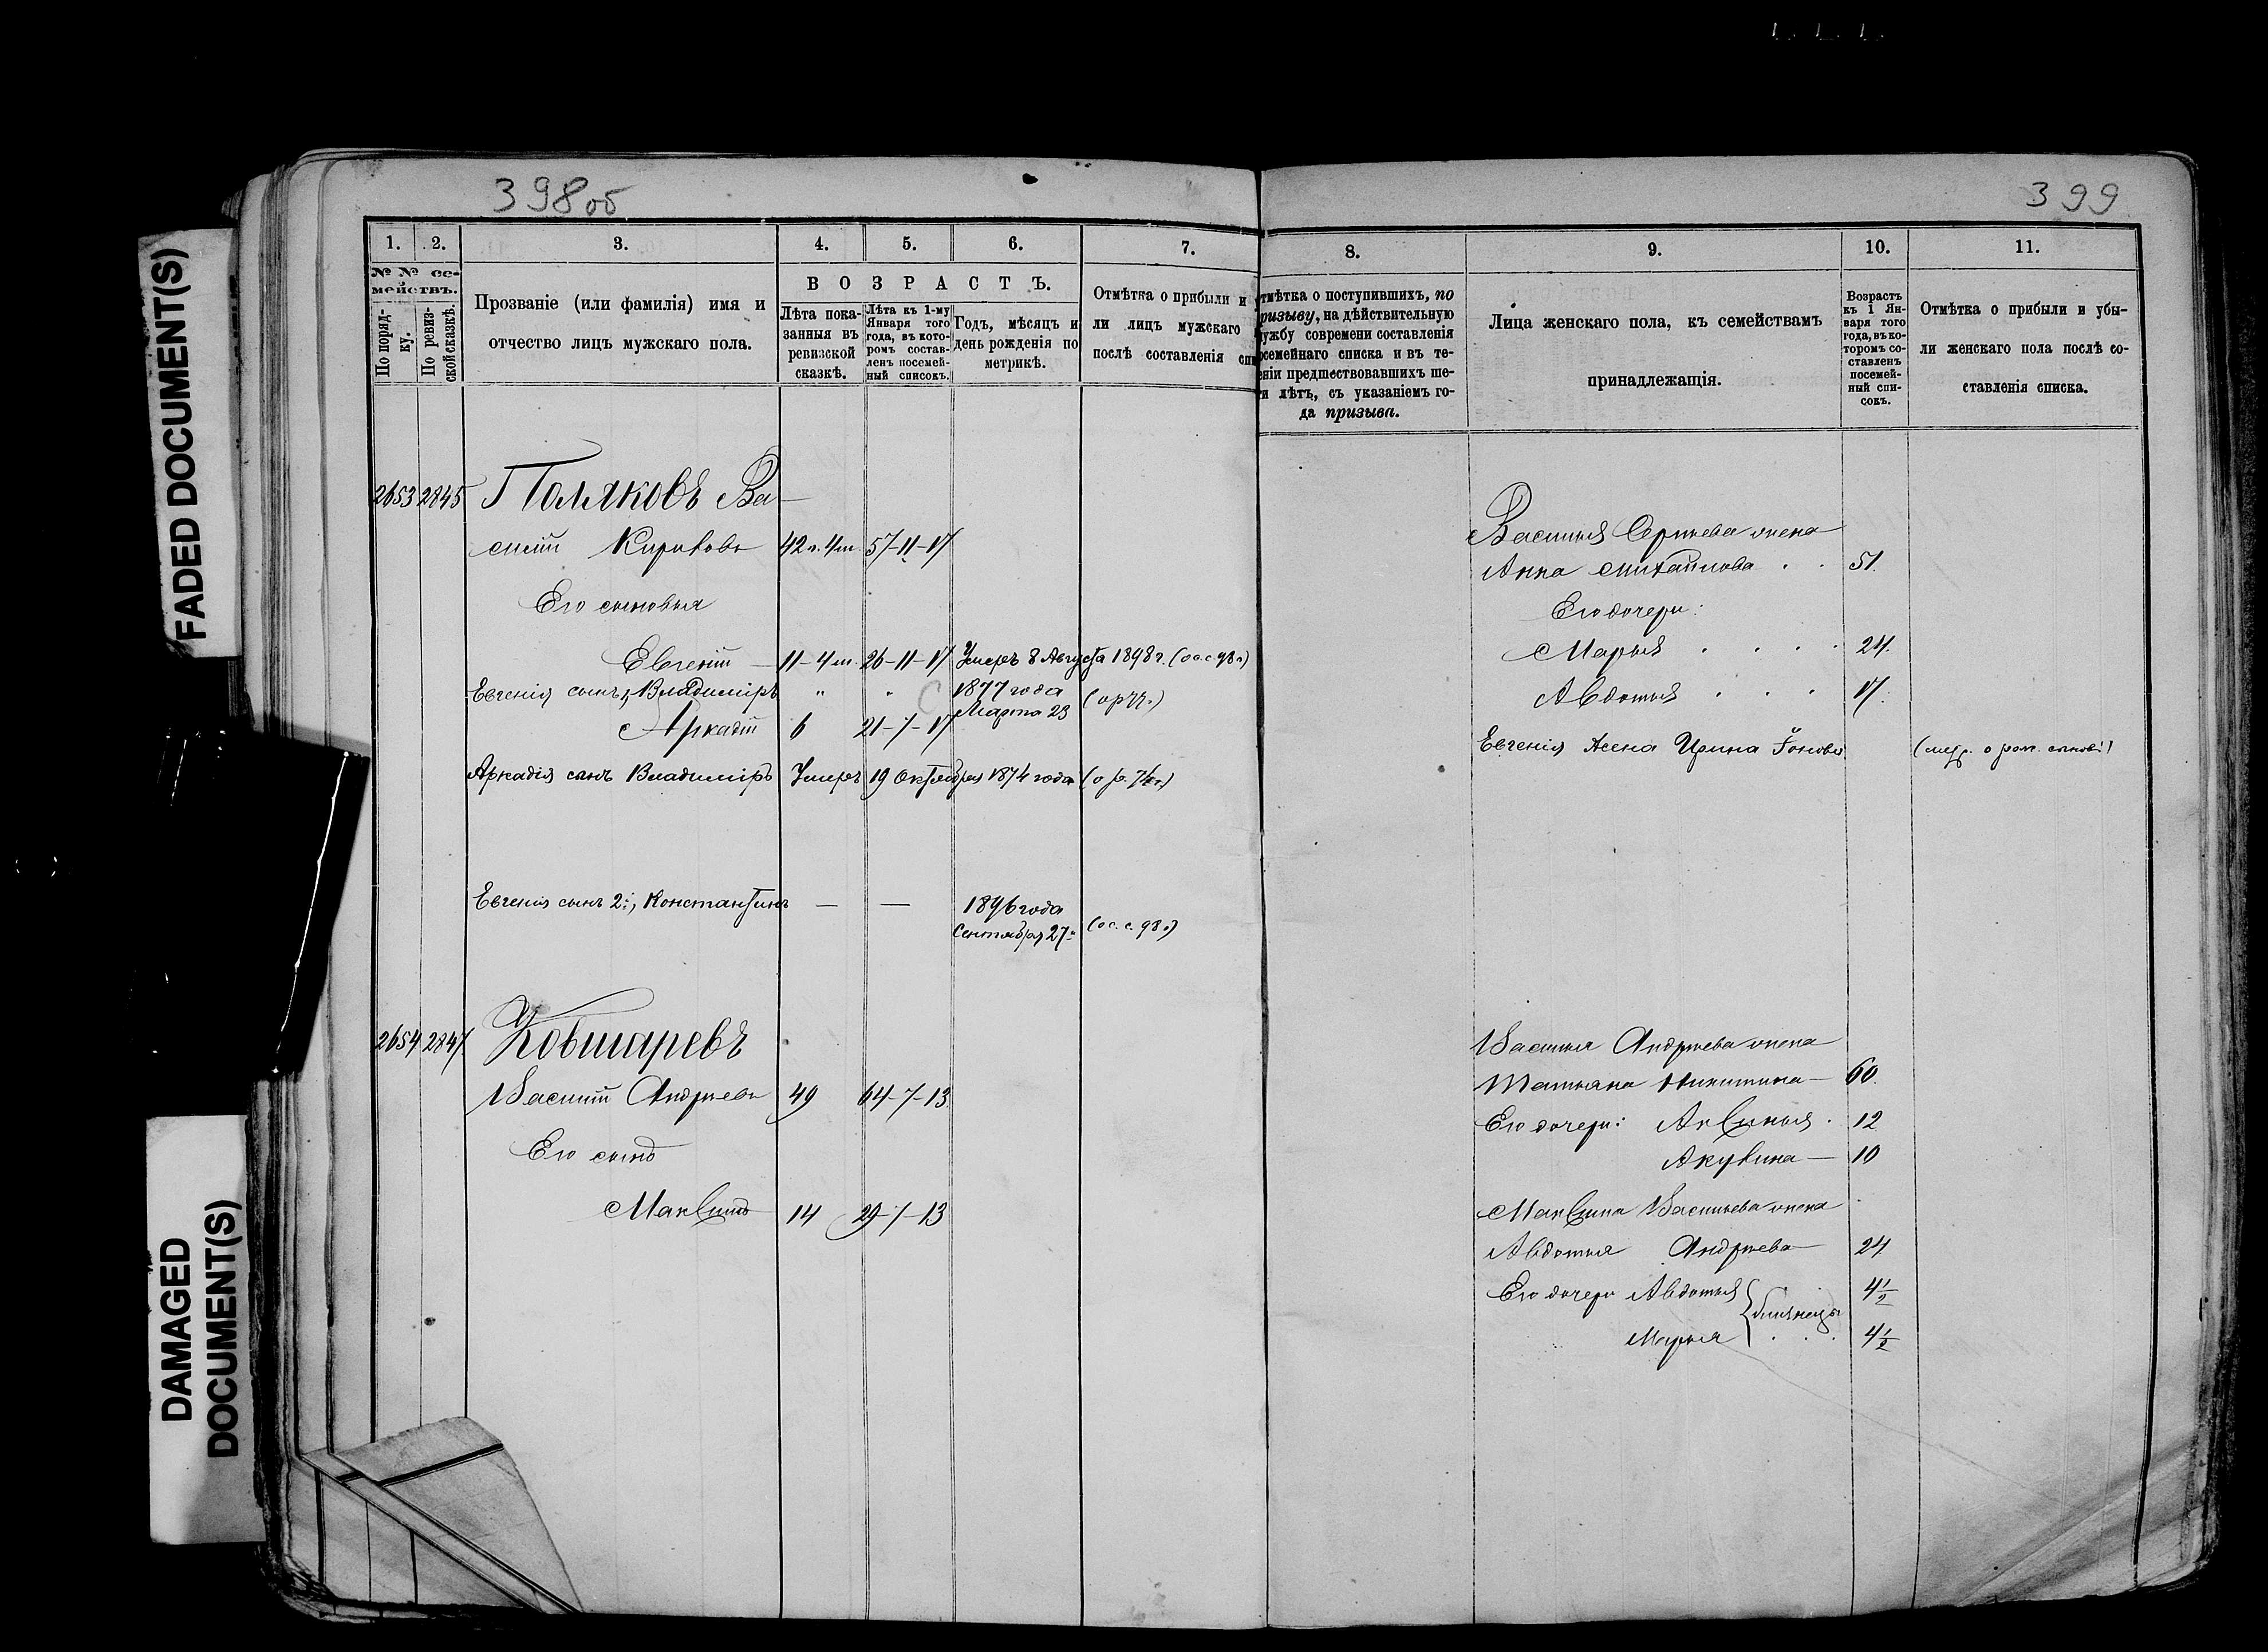 FADED DOCUMENT(S)
DAMAGED
DOCUMENT(S)
398об
1.
2.
3.
4.
5.
6.
7.
№ № се-
мействъ.
По поряд-
ку.
По ревиз-
ской сказкѣ.
Прозваніе (или фамилія) имя и
отчество лицъ мужскаго пола.
ВОЗРАСТЪ.
Лѣта пока-
занныя въ
ревизской
сказкѣ.
Лѣта къ 1-му
Января того
года, въ кото-
ромъ состав-
ленъ посемей-
ный списокъ.
Годъ, мѣсяцъ и
день рожденія по
метрикѣ.
Отмѣтка о прибыли и
ли лицъ мужскаго
послѣ составленія спи
2653 2845 Поляковъ Ва-
силій 42 г. 4 м. 57-11-17
Его сыновья
Евгеній 11-4 м. 26-11-17 Умеръ 8 Августа 1898 г. (о с. с. 98 г)
Евгенія сынъ 1, Владиміръ " " 1877 года
Марта 23
Аркадій 6 21-7-17
Аркадія сынъ Владиміръ Умеръ 19 Октября 1874 года (о р. 74 г.)
Евгенія сынъ 2й, Константинъ — — 1896 года
Сентября 27 (о с. с. 98 г)
2654 2847 Ковшаревъ
Василій Андреевъ 49 64-7-13
Его сынъ
Максимъ 14 29-7-13
399
8.
9.
10.
11.
тмѣтка о поступившихъ, по
ризыву, на дѣйствительную
ужбу современи составленія
осемейнаго списка и въ те-
еніи предшествовавшихъ ше-
ти лѣтъ, съ указаніемъ го-
да призыва.
Лица женскаго пола, къ семействамъ
принадлежащія.
Возрастъ
къ 1 Ян-
варя того
года, въ ко-
торомъ со-
ставленъ
посемей-
ный спи-
сокъ.
Отмѣтка о прибыли и убы-
ли женскаго пола послѣ со-
ставленія списка.
Василья жена
Анна Михайлова 51.
Его дочери:
Марья 24.
Авдотья 17.
Евгенія жена Ирина
Василья Андреева жена
Татьяна Никитина — 60.
Его дочери: Аксинья 12
Акулина — 10
Максима Васильева жена
Авдотья Андреева 24
Его дочери Авдотья 4 1/2
близнецы
Марья 4 1/2